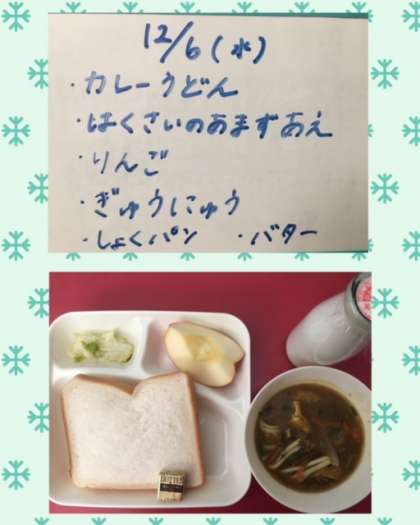 12/6(水)
・カレーうどん
・はくさいのあまずあえ
・りんご
・ぎゅうにゅう
・しょくパン ・バター